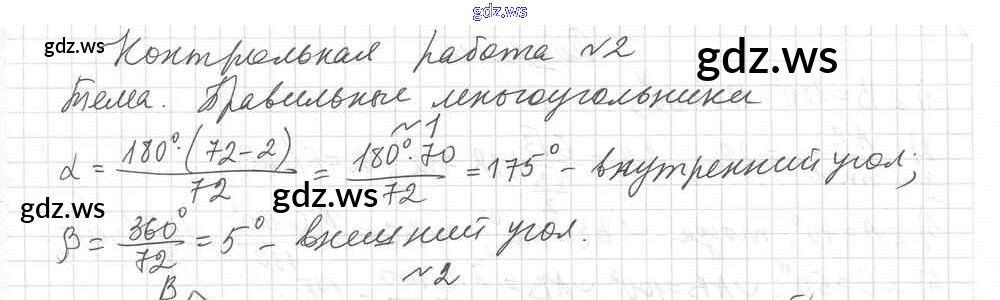 gdz.ws
gdz.ws Контрольная работа №2 gdz.ws
Тема. Правильные многоугольники
№1
α = 180°·(72-2)/72 = 180°·70/72 = 175° - внутренний угол;
gdz.ws gdz.ws
β = 360°/72 = 5° - внешний угол.
№2
B